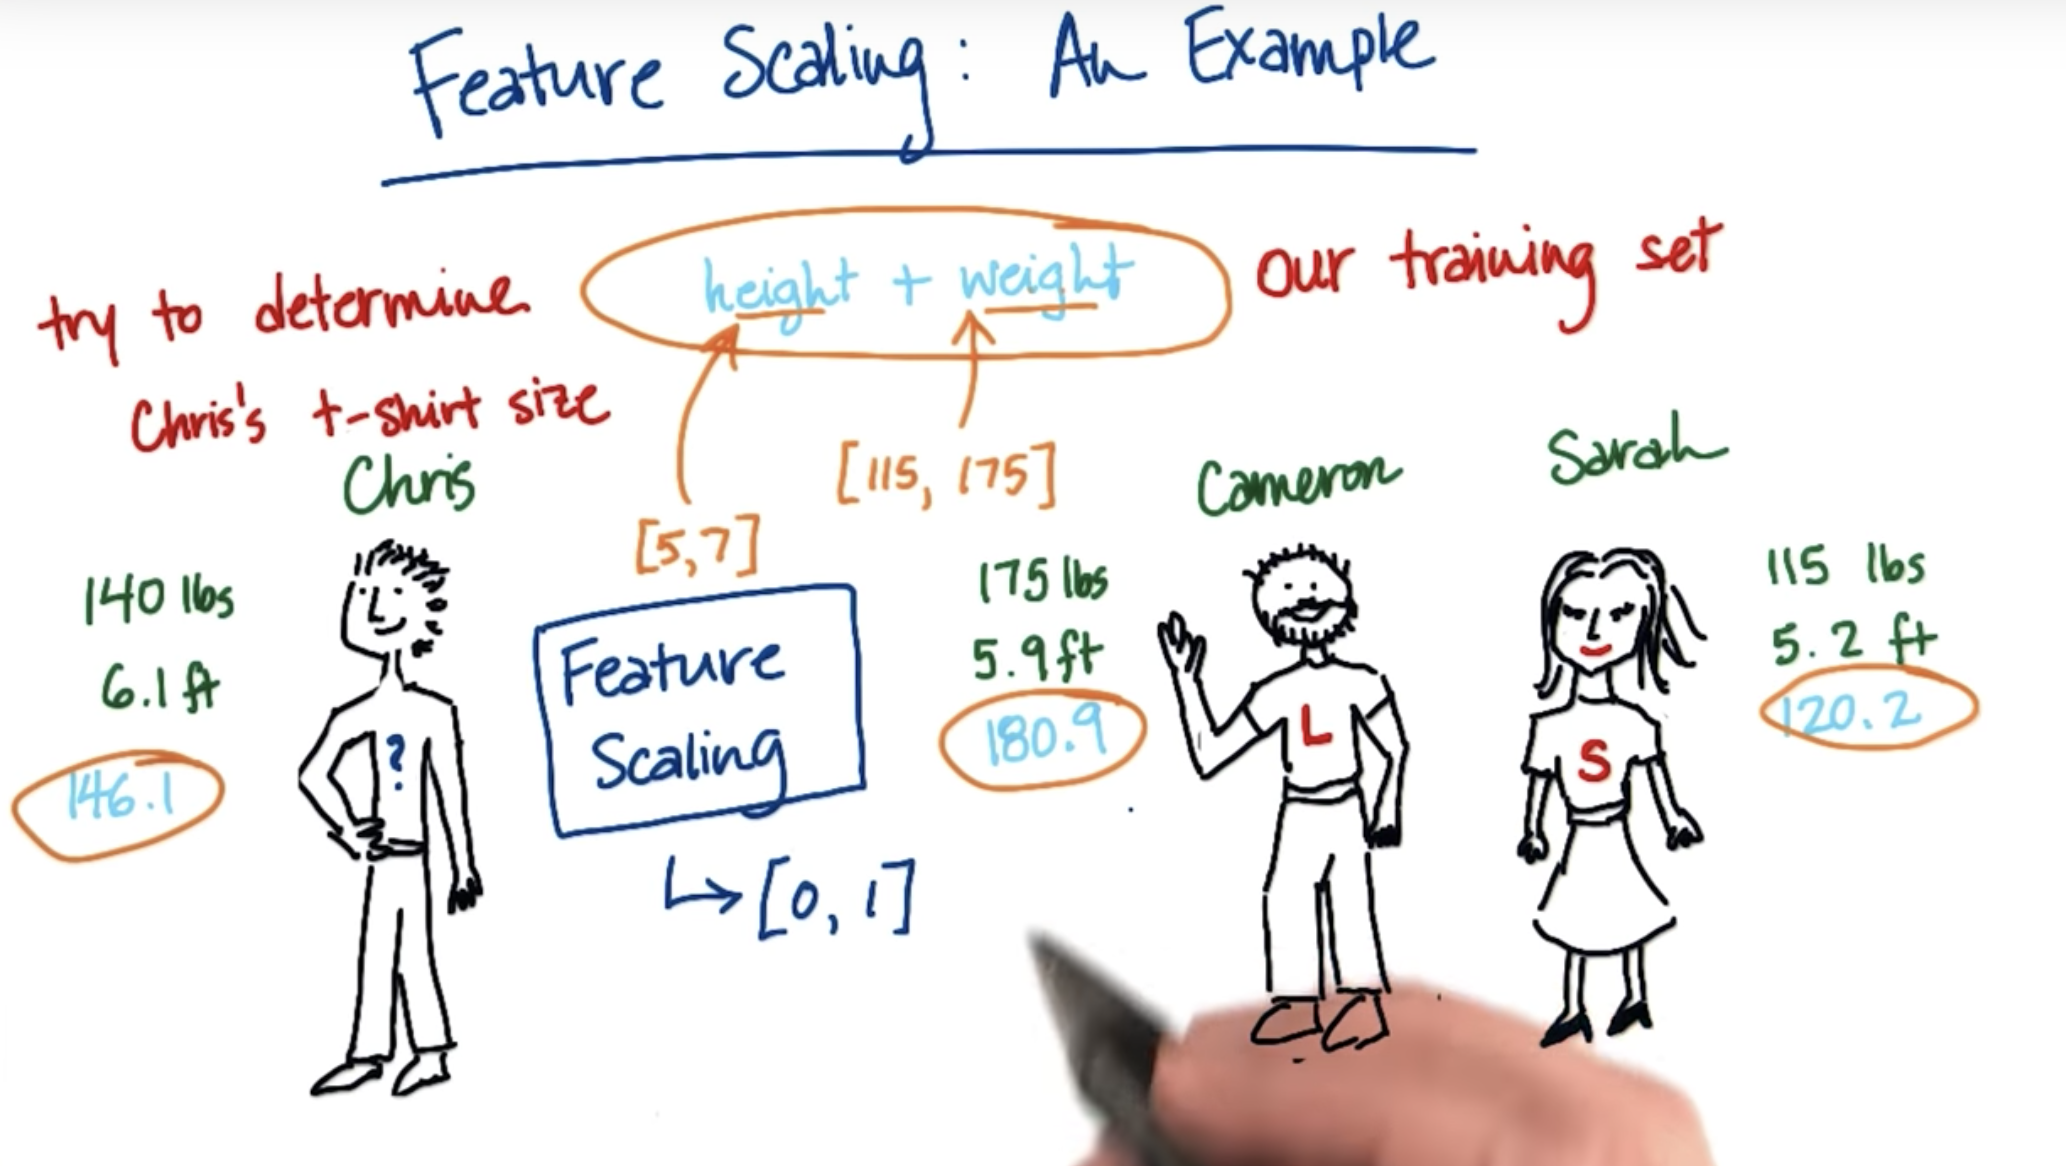 Feature Scaling: An Example
try to determine
Chris's t-shirt size
height + weight
our training set
[5,7]
[115, 175]
Chris
140 lbs
6.1 ft
146.1
?
Feature
Scaling
↳ [0, 1]
Cameron
175 lbs
5.9 ft
180.9
L
Sarah
115 lbs
5.2 ft
120.2
S